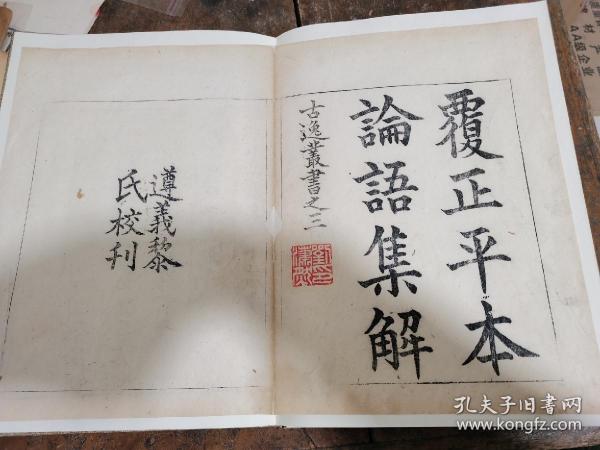 覆正平本
論語集解
古逸叢書之三
遵義黎
氏校刊
孔夫子旧书网
www.kongfz.com
AA级企业